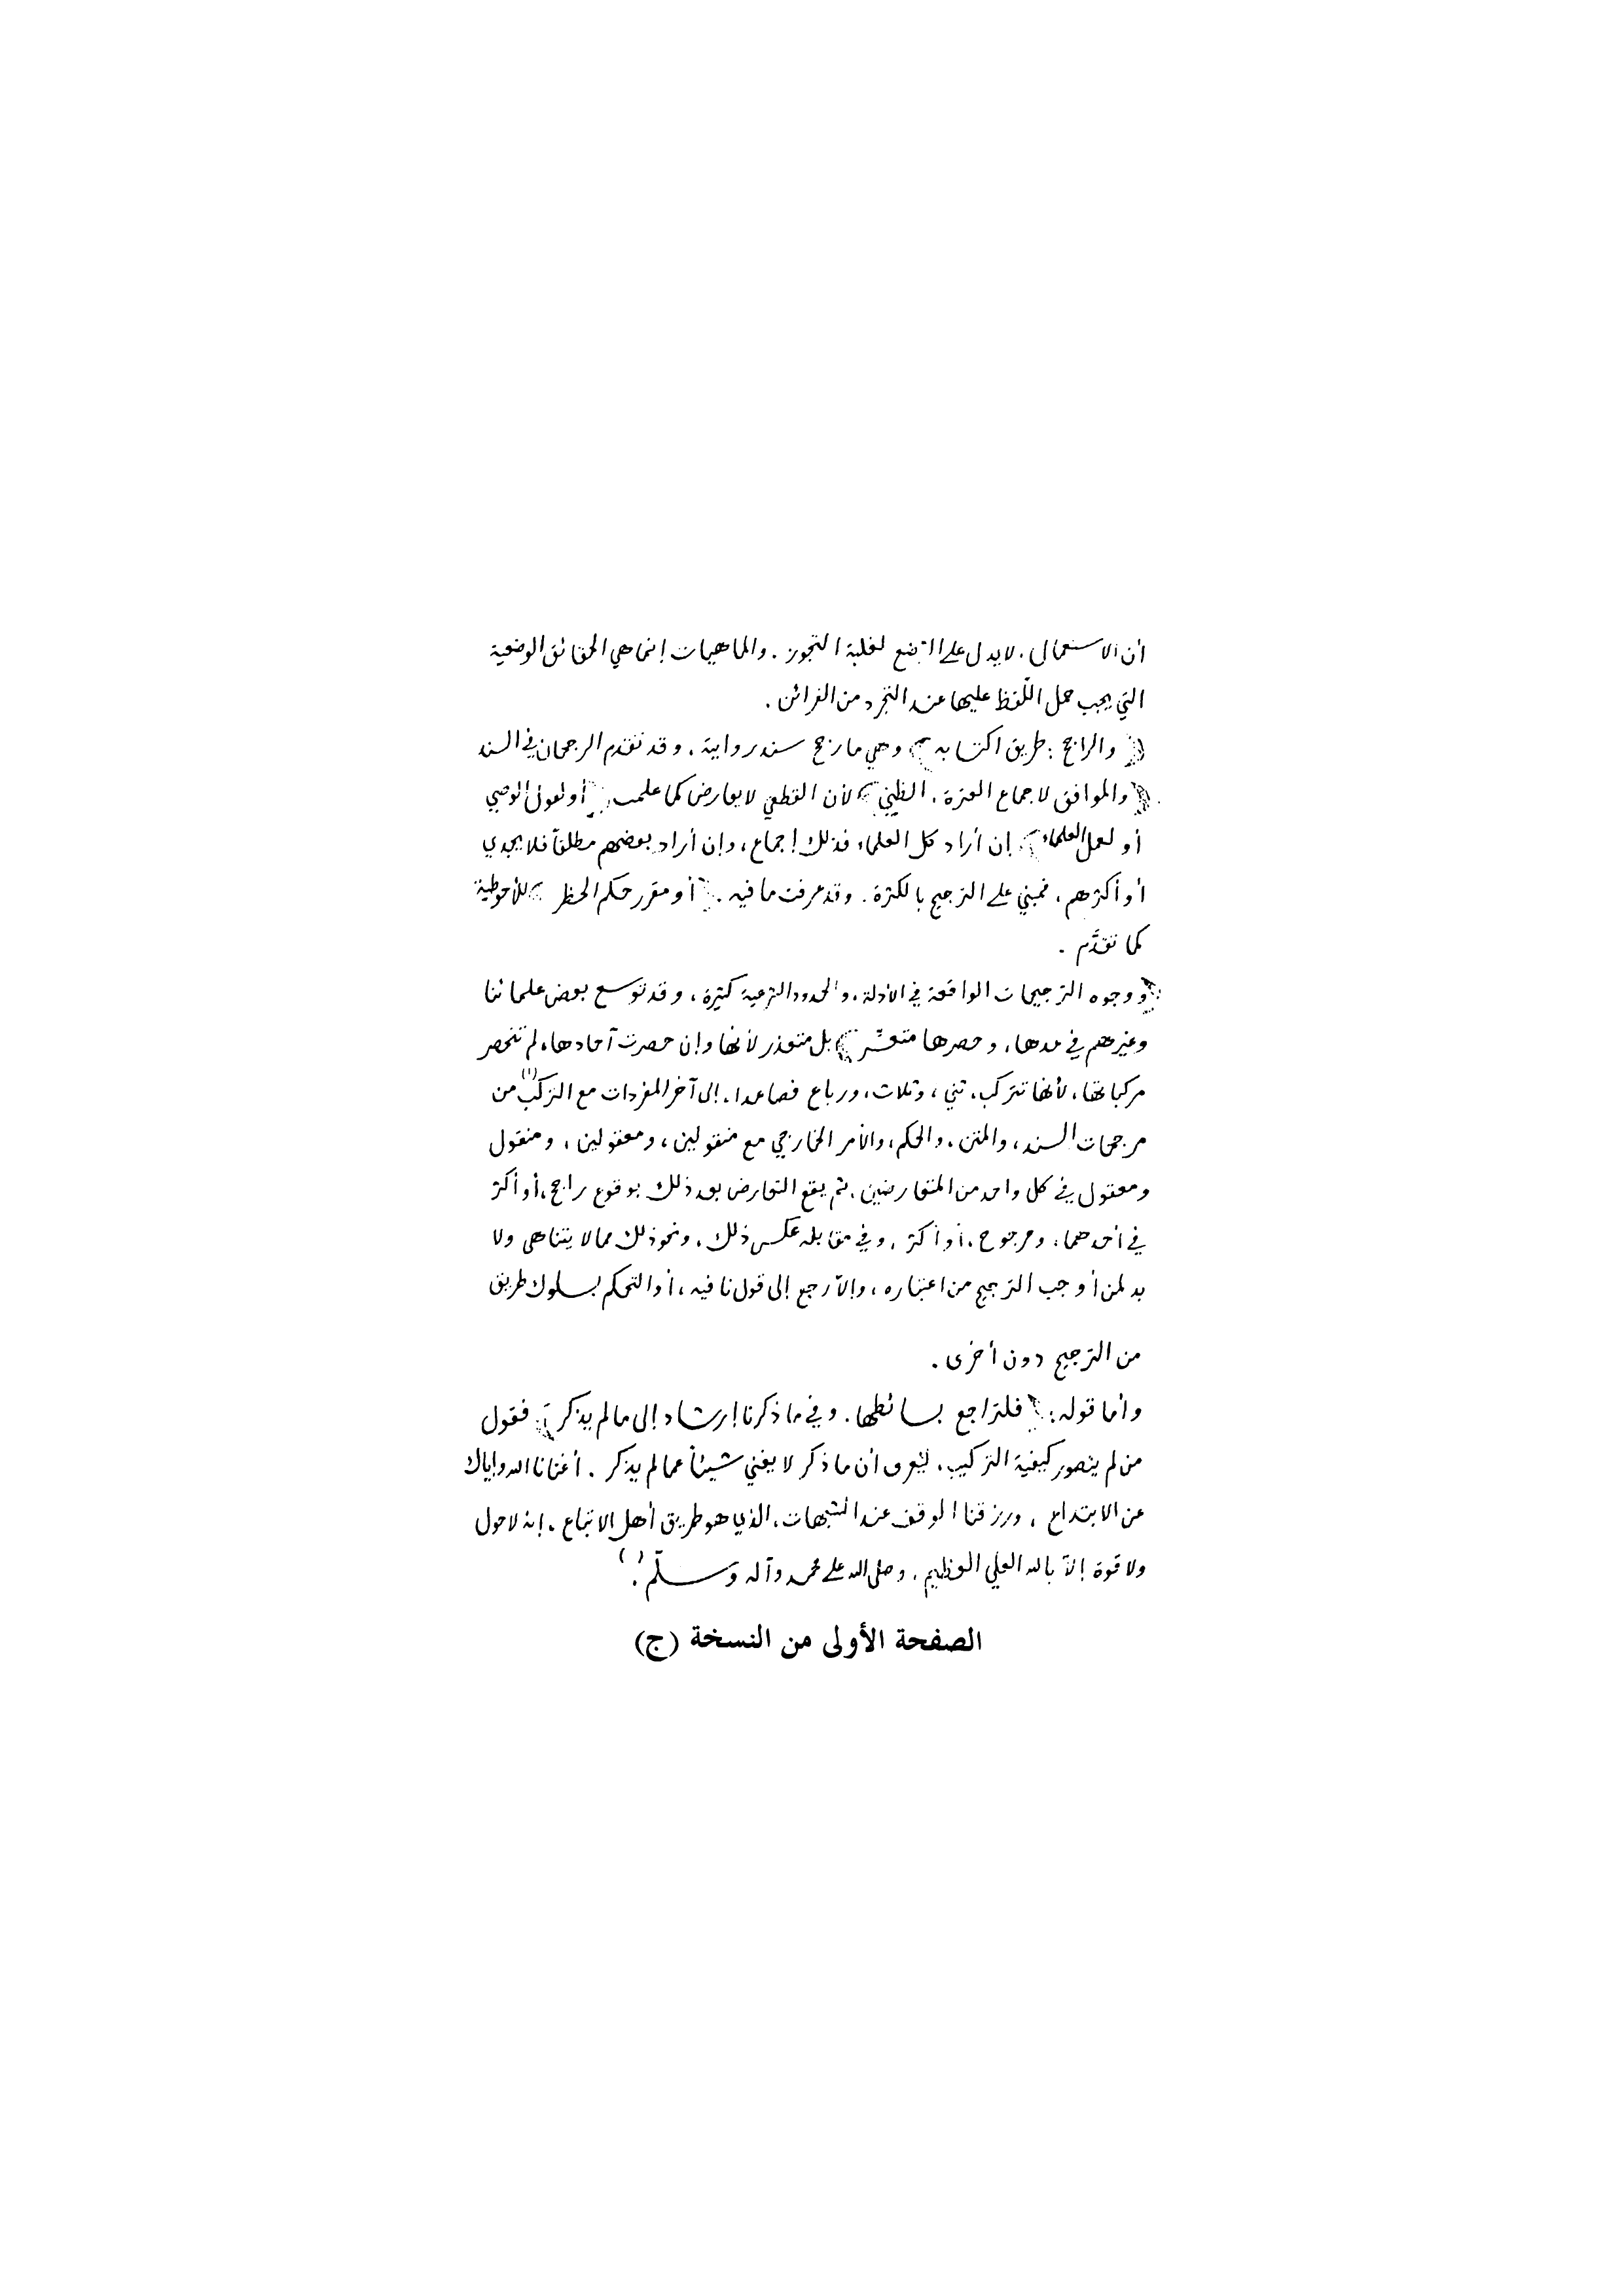 أن الاستعمال، لا يدل على الوضع لغلبة التجوز. والماهيات إنما هي الحقائق الوضعية
التي يجب حمل اللّفظ عليها عند التجرد من القرائن.
(والراجح: طريق اكتسابه) وهي ما رجح سند روايته، وقد تقدم الرجحان في السند
(والموافق لإجماع العترة، الظني) لأن القطعي لا يعارض كما علمت (أو لقول الوصي
أو لعمل العلماء) إن أراد كل العلماء فذلك إجماع، وإن أراد بعضهم مطلقاً فلا يجدي
أو أكثرهم، فمبني على الترجيح بالكثرة. وقد عرفت ما فيه. (أو مقرر حكم الحظر) للأحوطية
كما تقدَّم.
(ووجوه الترجيحات الواقعة في الأدلة، والحدود الشرعية كثيرة، وقد توسع بعض علمائنا
وغيرهم في عدها، وحصرها متعسّر) بل متعذر لأنها وإن حصرت آحادها، لم تنحصر
مركباتها، لأنها تتركب، ثني، وثلاث، ورباع فصاعدا، إلى آخر المفردات مع التركب(١) من
مرجحات السند، والمتن، والحكم، والأمر الخارجي مع منقولين، ومعقولين، ومنقول
ومعقول في كل واحد من المتعارضين، ثم يقع التعارض بعد ذلك بوقوع راجح، أو أكثر
في أحدهما، ومرجوح، أو أكثر، وفي مقابله عكس ذلك، ونحو ذلك مما لا يتناهى ولا
بد لمن أوجب الترجيح من اعتباره، وإلاّ رجع إلى قول نافيه، أو التحكم بسلوك طريق
من الترجيح دون أخرى.
وأما قوله: (فلتراجع بسائطها. وفي ما ذكرنا إرشاد إلى ما لم يذكر) فقول
من لم يتصور كيفية التركيب، ليعرف أن ما ذكر لا يغني شيئاً عما لم يذكر. أغنانا الله وإياك
عن الابتداع، ورزقنا الوقف عند الشبهات، الذي هو طريق أهل الاتباع، إنه لا حول
ولا قوة إلاّ بالله العلي العظيم، وصلى الله على محمد وآله وسلّم.
الصفحة الأولى من النسخة (ج)